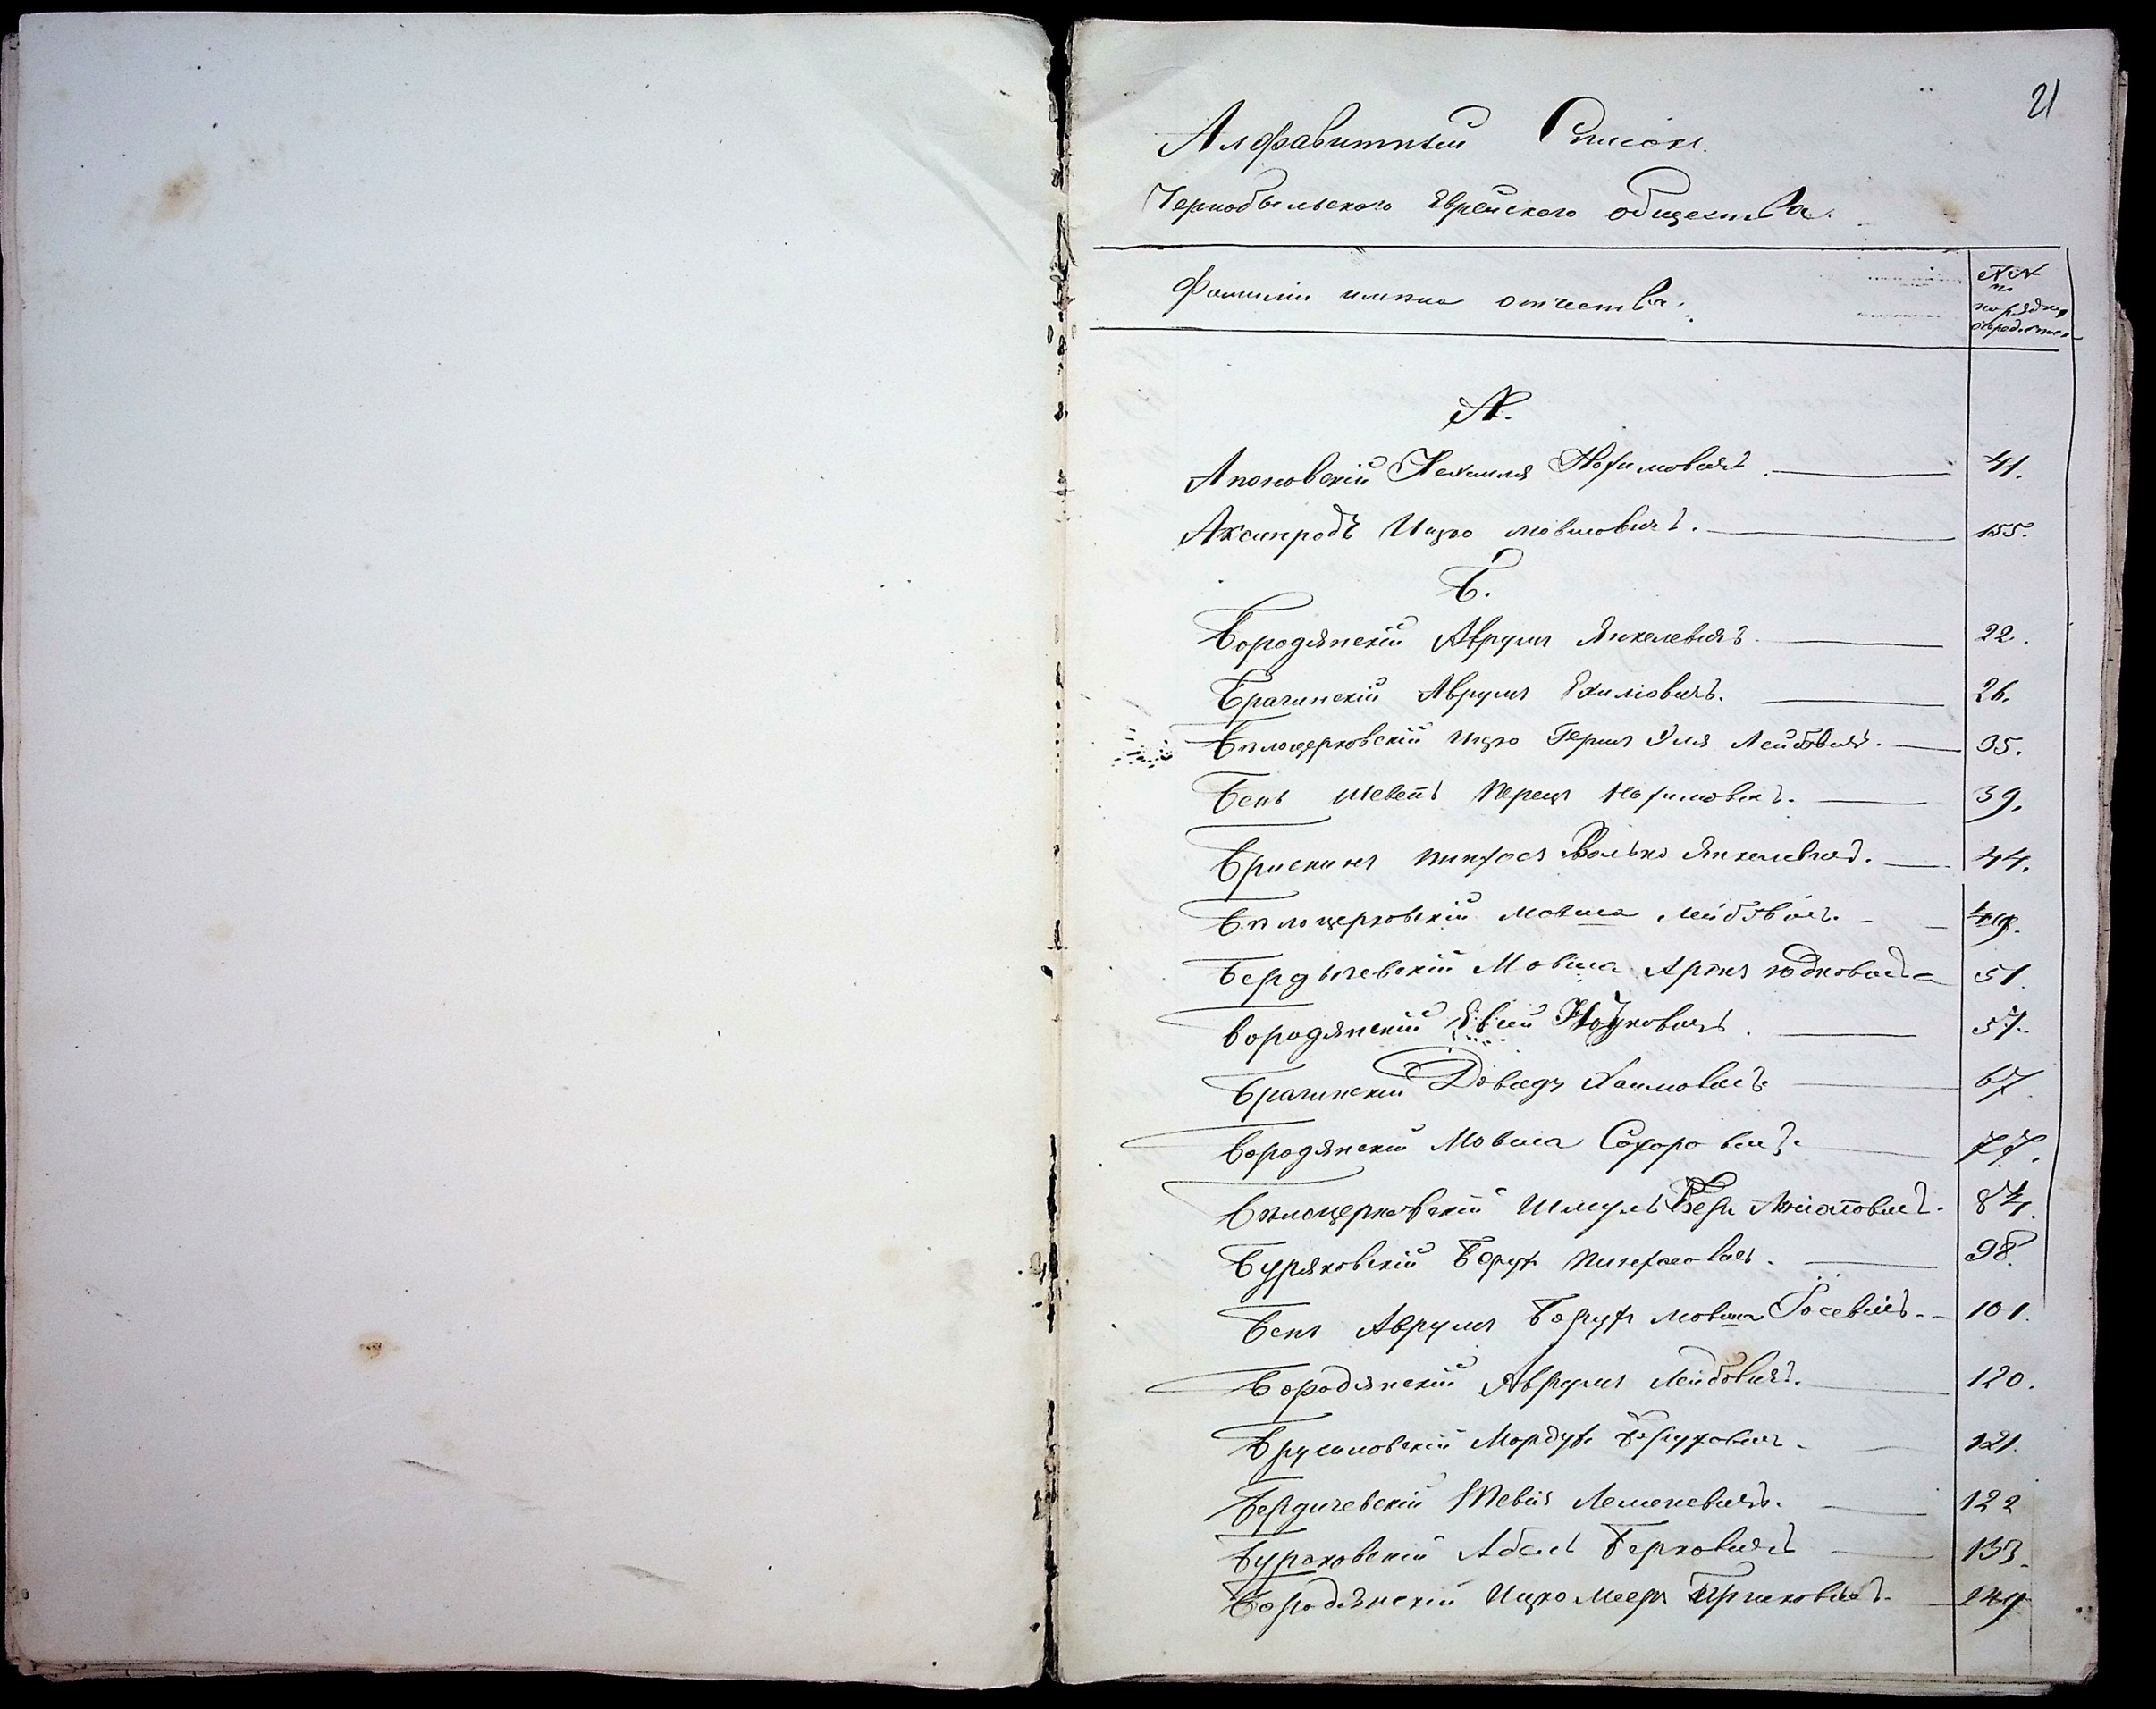 21
Алфавитный Списокъ
Чернобыльского Еврейского общества.
Фамилии имена отчества.
№№ по порядку
А.
Апоновскій Нехемія Нохимовичъ. 41.
Аксипродъ Ицко Мовшовичъ. 155.
Б.
Бородянскій Аврумъ Янкелевичъ. 22.
Брагинскій Аврумъ Ехимовичъ. 26.
Бѣлоцерковскій Ицко Гершъ Эля Лейбовичъ. 35.
Бенъ Шевель Перецъ Нохимовичъ. 39.
Брискинъ Пинхосъ Волько Янкелевичъ. 44.
Бѣлоцерковскій Мовша Лейбовичъ. 49.
Бердычевскій Мовша Аронъ Юдковичъ 51
Бородянскій Евсей Нотковичъ. 57.
Брагинскій Довидъ Хаимовичъ. 67
Бородянскій Мовша Сохоровичъ. 77.
Бѣлоцерковскій Шмуль Беръ 84.
Буряковскій Борухъ Пинхасовичъ. 98.
Бенъ Аврумъ Борухъ Мовша Іосевичъ. 101.
Бородянскій Аврумъ Лейбовичъ. 120.
Брусиловскій Мордухъ Боруховичъ. 121.
Бердичевскій Шевия 122
Бураковскій Абель Берковичъ 133.
Бородянскій Ицко Мееръ 149